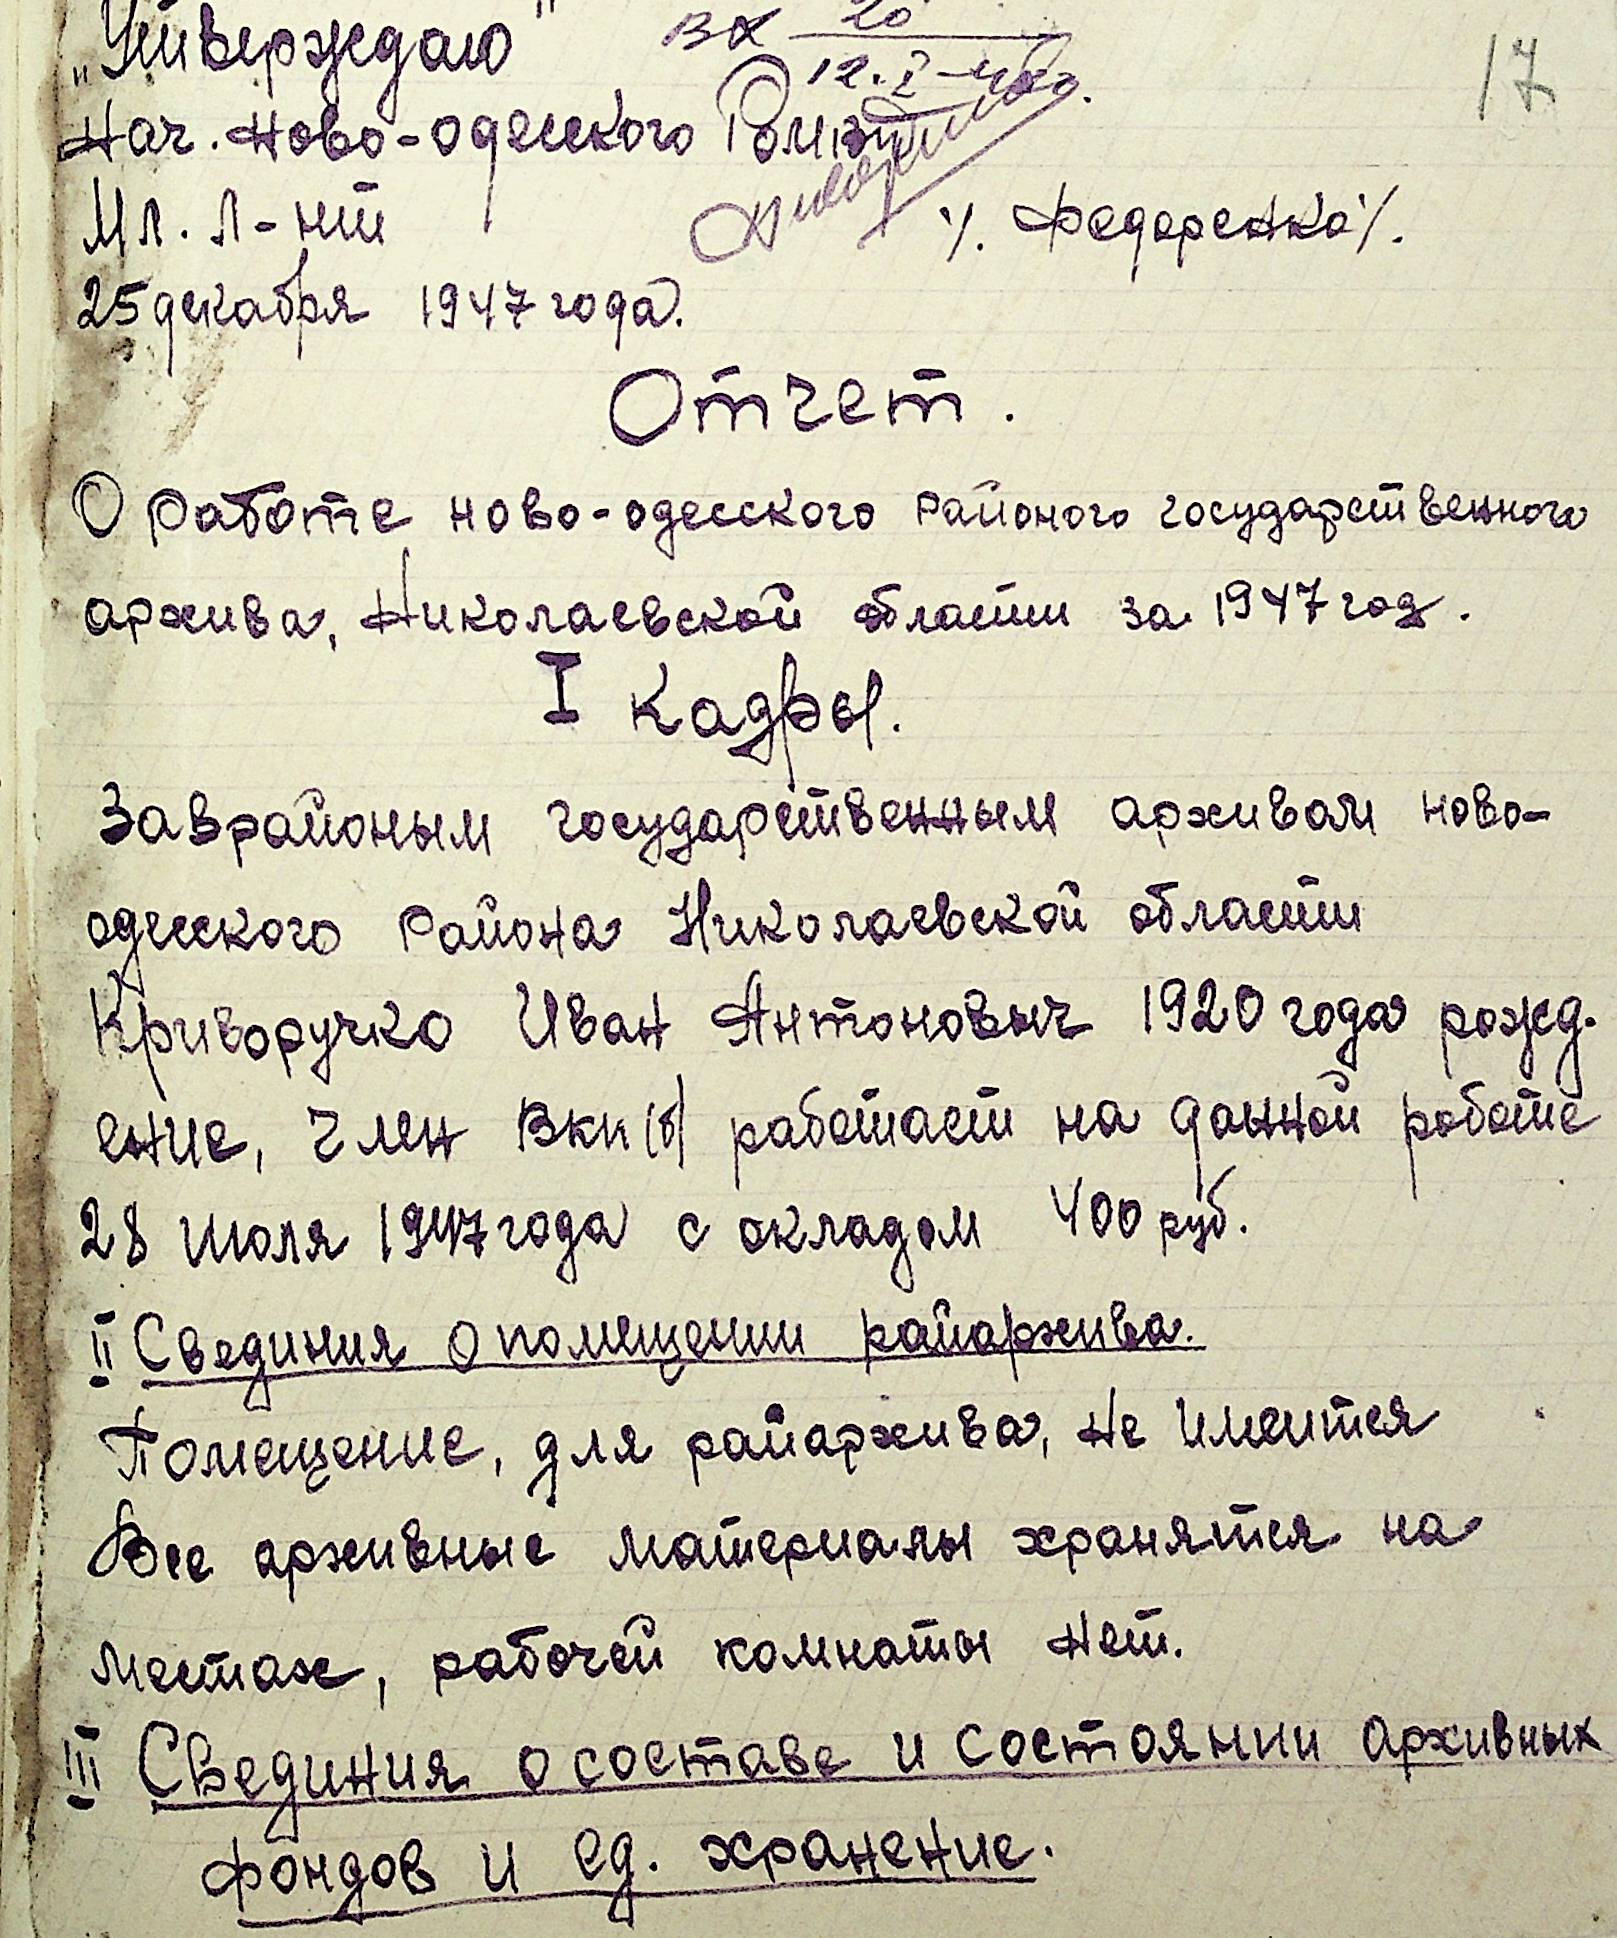 „Утверждаю"
Вх 20
12.I-48г.
17
Нач. Ново-одесского Ром
Мл. Л-нт /. Федоренко /.
25 декабря 1947 года.
Отчет.
О работе ново-одесского районого государственного
архива, Николаевской области за 1947 год.
I Кадры.
Заврайоным государственным архивом ново-
одесского района Николаевской области
Криворучко Иван Антоновыч 1920 года рожд.
ение, член Вкп(б) работает на данной работе
28 июля 1947 года с окладом 400 руб.
II Свединия о помещении райархива.
Помещение, для райархива, не имеится
Все архивные материалы хранятся на
местах, рабочей комнаты нет.
III Свединия о составе и состоянии архивных
фондов и ед. хранение.